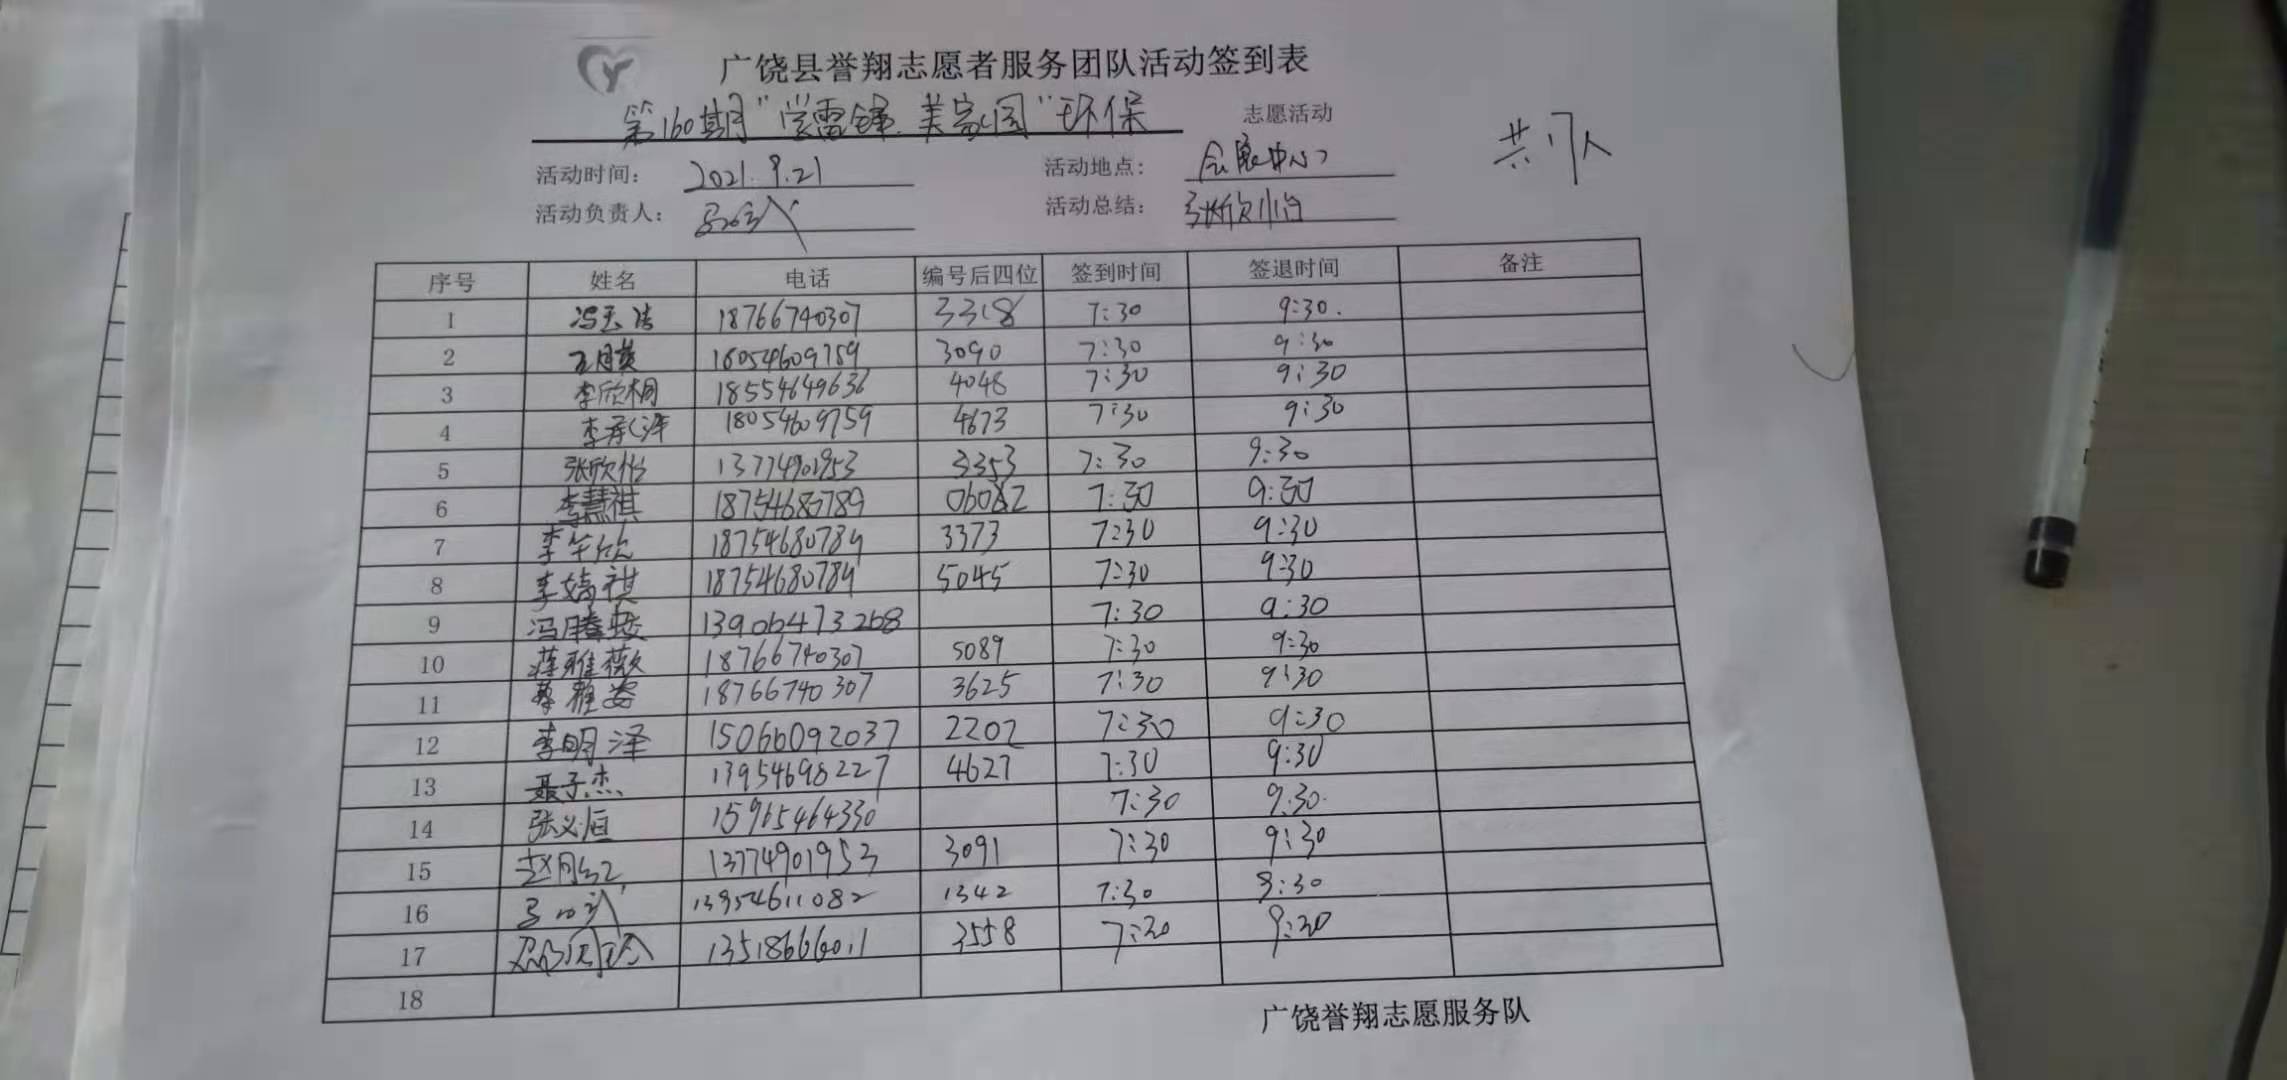 广饶县誉翔志愿者服务团队活动签到表
第160期"学雷锋.美家园"环保 志愿活动
共17人
活动时间: 2021.9.21 活动地点: 会展中心
活动负责人: 活动总结: 张欣怡
序号 姓名 电话 编号后四位 签到时间 签退时间 备注
1 冯玉洁 18766740307 3318 7:30 9:30.
2 王月英 18054609759 3090 7:30 9:30
3 李欣桐 18554649636 4048 7:30 9:30
4 李承泽 18054609759 4673 7:30 9:30
5 张欣怡 13774901953 3353 7:30 9:30
6 李慧祺 18754680789 7:30 9:30
7 李笑欣 18754680789 3373 7:30 9:30
8 李婧祺 18754680789 5045 7:30 9:30
9 冯腾 13906473268 7:30 9:30
10 蒋雅薇 18766740307 5089 7:30 9:30
11 雅姿 18766740307 3625 7:30 9:30
12 李明泽 15066092037 2202 7:30 9:30
13 聂子杰 13954698227 4627 7:30 9:30
14 张义恒 15965464330 7:30 9:30
15 赵月红 13774901953 3091 7:30 9:30
16 13954611082 1342 7:30 9:30
17 13518666011 3558 7:30 9:30
18
广饶誉翔志愿服务队